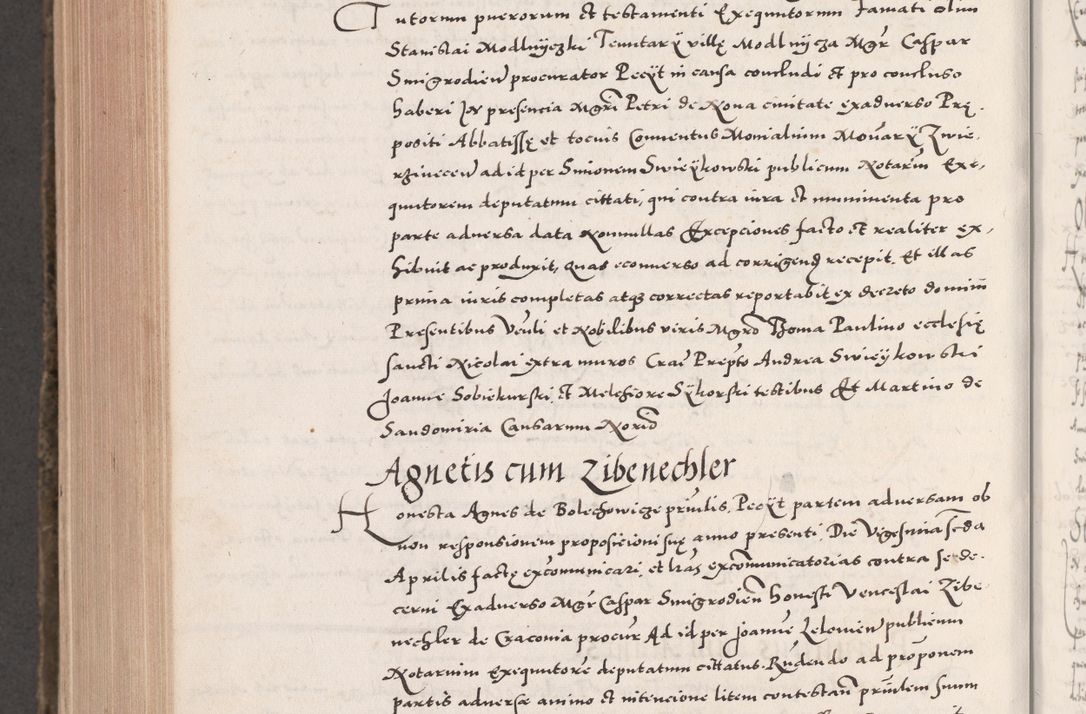 Tutorum puerorum et testamenti Exequutorum Famati olim
Stanislai Modlnyczki Tenutarÿ villę Modlnycza Mgr Caspar
Smigrodien procurator Pecÿt in causa concludi et pro concluso
haberi In presencia Mgri Petri de Nova civitate exadverso Prę
positi Abbatissę et tocius Conventus Monialium Monarÿ Zwie
rziniecen ad id per Simonem Swieÿkowski publicum Notarium Exe,
quutorem deputatum cittati, qui contra iura et munimenta pro
parte adversa data Nonnullas Excepciones facto et realiter ex,
hibuit ac produxit, Quas econverso ad corrigend recepit, Et illas
prima iuris completas atqz correctas reportabit ex decreto domini
Presentibus Venli et Nobilibus viris Mgro Thoma Paulino ecclesię
sancti Nicolai extra muros Crac Prepto Andrea Swieÿkowski
Joanne Sobiekurski, et Melchiore Sÿkorski testibus Et Martino de
Sandomiria Causarum Norio
Agnetis cum Zibenechler
Honesta Agnes de Bolechowicze privilis, Pecÿt partem adversam ob
non responsionem proposicioni suę anno presenti, Die Vigesima scda
Aprilis factę excommunicari, et lras excommunicatorias contra se de,
cerni Exadverso Mgr Caspar Smigrodien honesti Venceslai Zibe
nechler de Cracovia procur Ad id per Joanne Lelowien publicum
Notarium Exequutore deputatum cittatus. Rńdendo ad proponem
partis adversæ animo et intencione litem contestan privilem suum